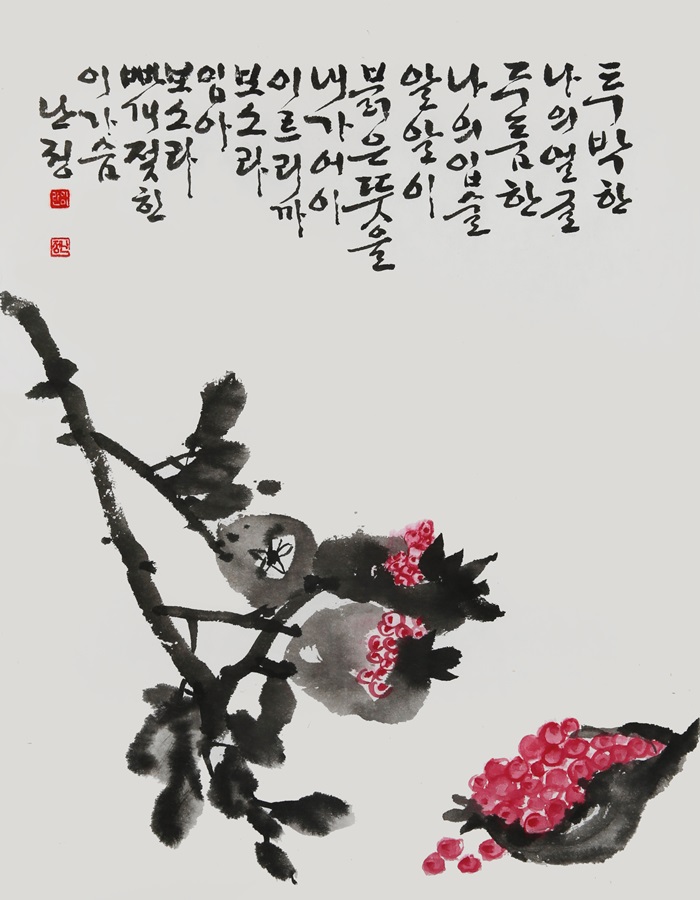 투박한
나의얼굴
두툼한
나의입술
알알이
붉은뜻을
내가어이
이르리까
보소라
임아
보소라
빠개젖힌
이가슴
난정